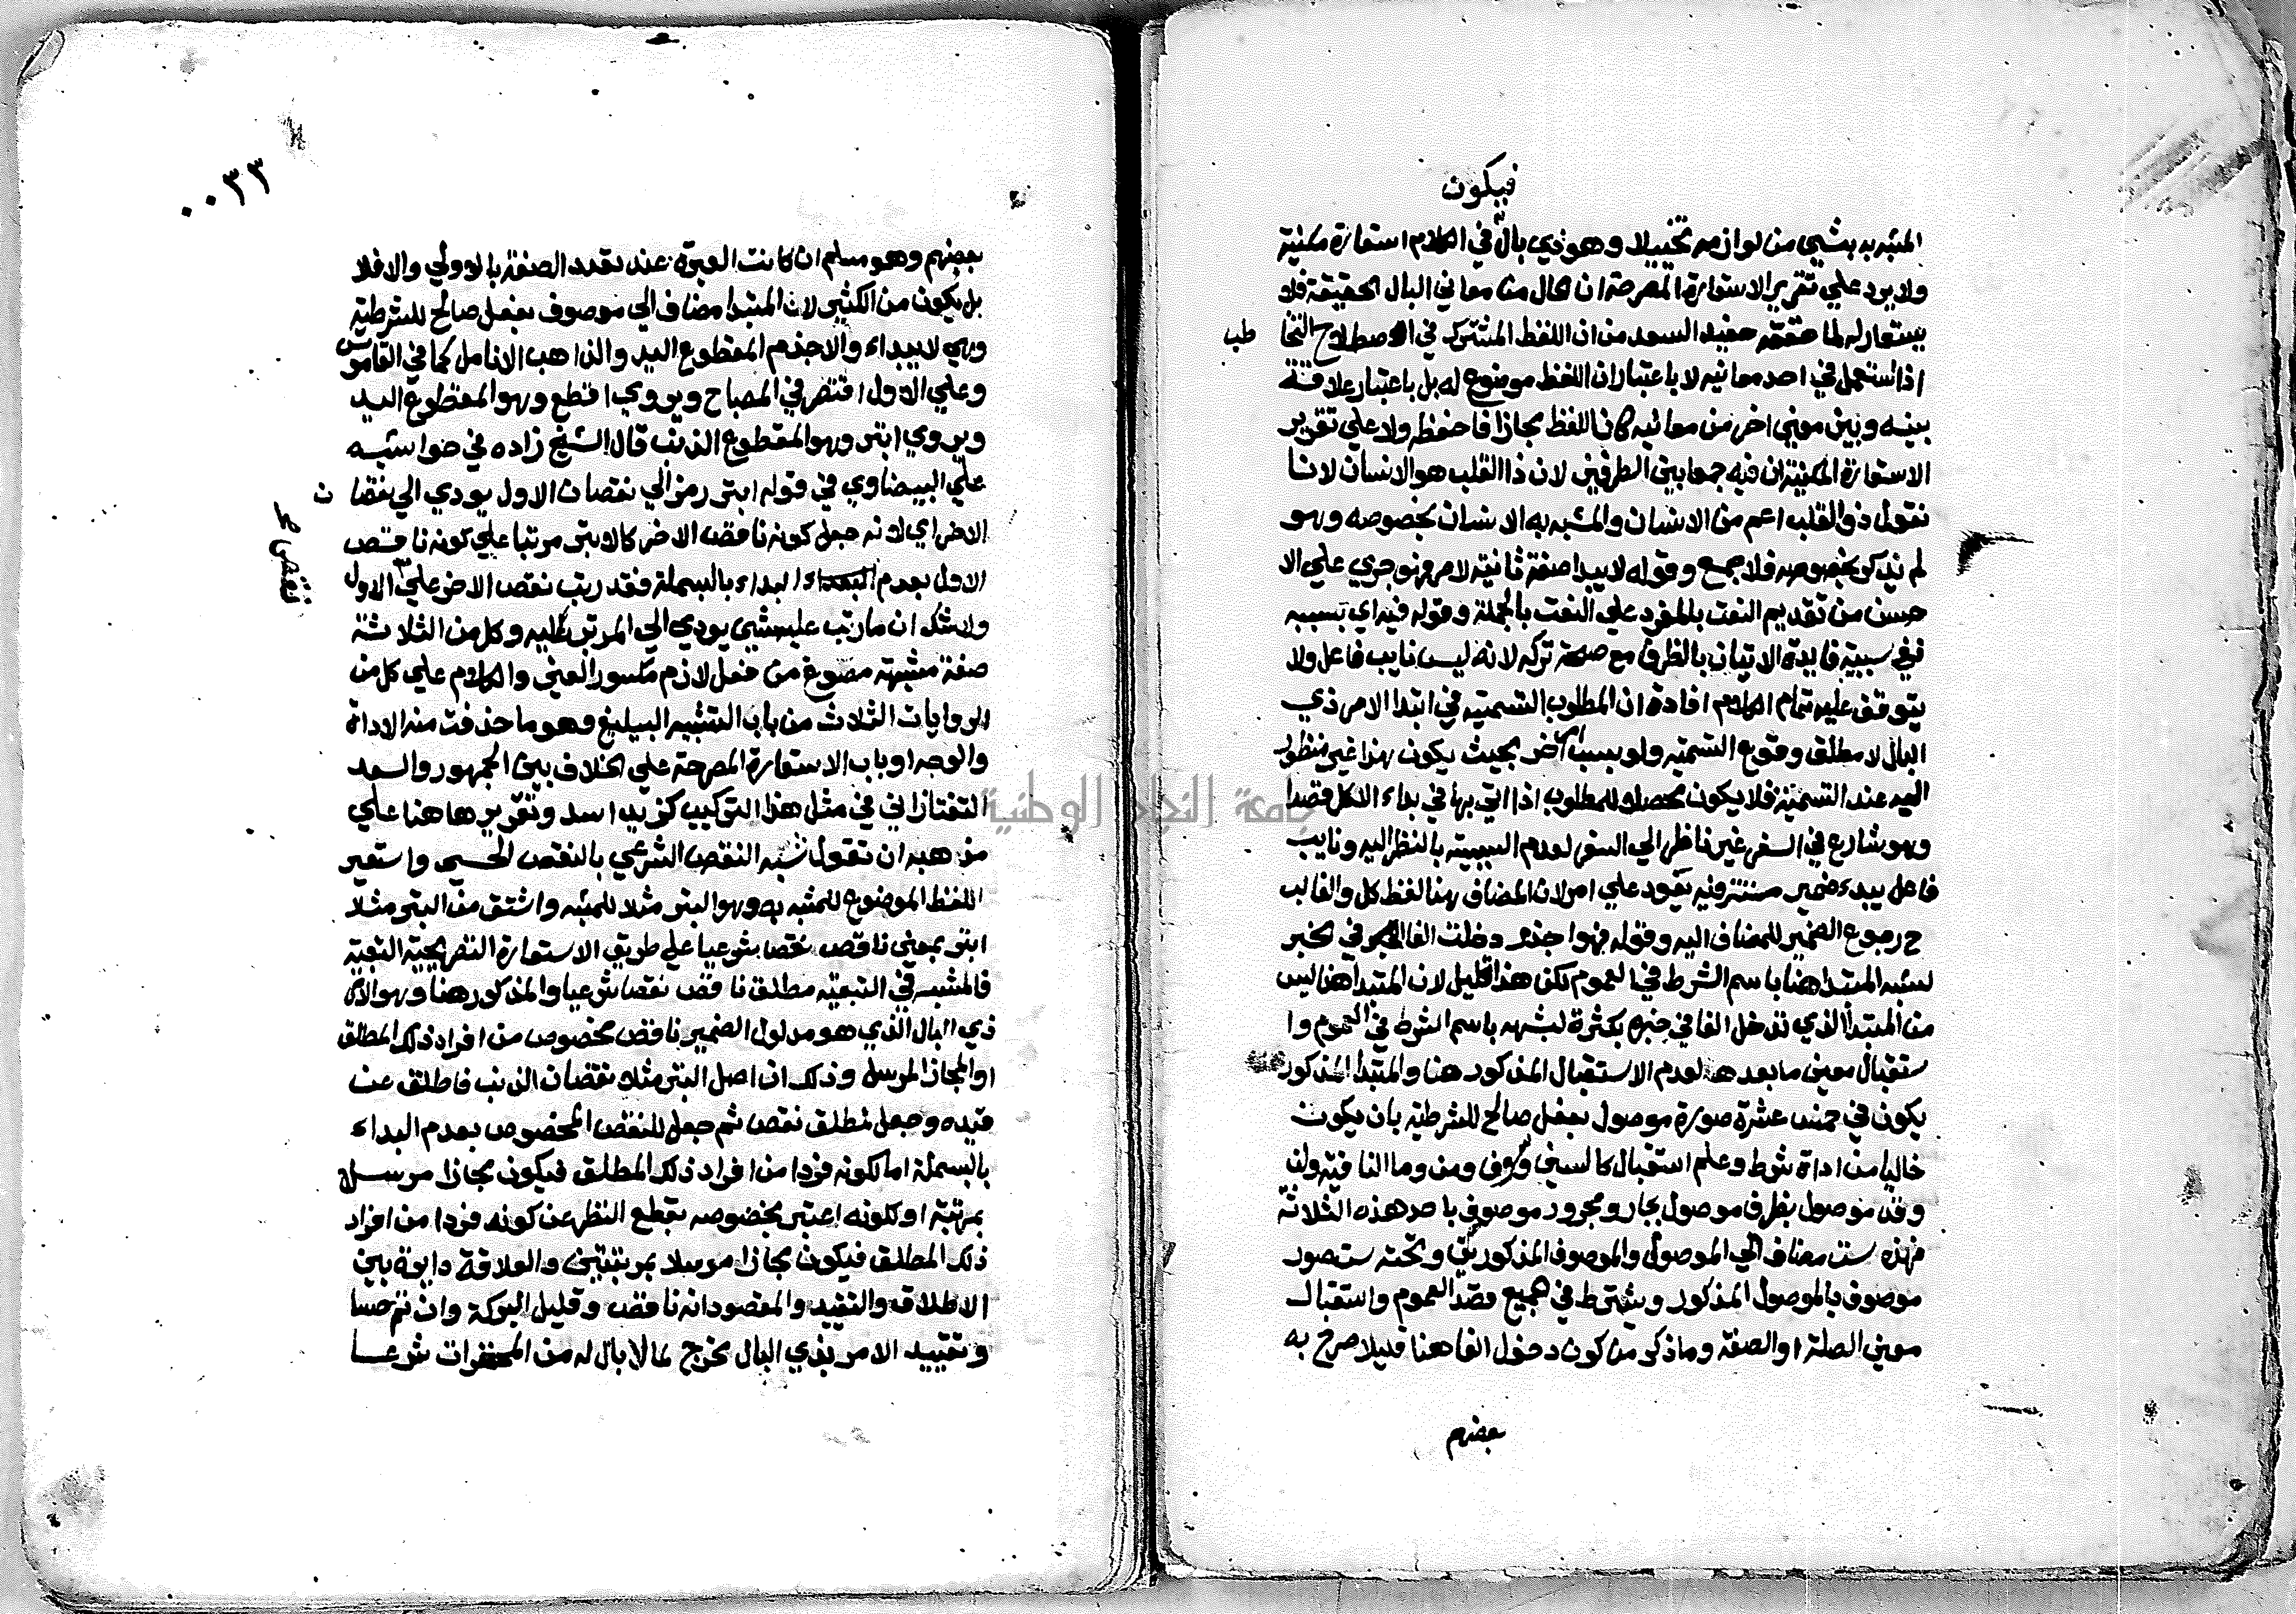 فيكون
المشبه به بشي من لوازمه تخييلا وهو ذي بال في الكلام استعارة مكنية
ولا يرد علي تقرير الاستعارة المصرحة ان الحال من معاني البال الحقيقة فلا
يستعار له لما حققه حفيد السعد من ان اللفظ المشترك في اصطلاح التخا طب
اذا استعمل في احد معانيه لا باعتبار ان اللفظ موضوع له بل باعتبار علاقة
بينه وبين معني اخر من معانيه كان اللفظ مجازا فاحفظه ولا علي تقرير
الاستعارة المكنية ان فيه جمعا بين الطرفين لان ذا القلب هو الانسان لانا
نقول ذو القلب اعم من الانسان والمشبه به الانسان بخصوصه وهو
لم يذكر بخصوصه فلا جمع وقوله لا يبدا صفة ثانية لامر فهو جري علي الا
حسن من تقديم النعت بالمفرد علي النعت بالجملة وقوله فيه اي بسببه
ففي سببية فايدة الاتيان بالظرف مع صحة تركه لانه ليس نايب فاعل ولا
يتوقف عليه تمام الكلام افادة ان المطلوب التسمية في ابتدا الامر ذي
البال لا مطلق وقوع التسمية ولو بسبب اخر بحيث يكون هذا غير منظور
اليه عند التسمية فلا يكون محصلا للمطلوب اذا اتي بها في بداء الاكل قصدا
وهو شارع في السفر غير ناظر الي السفر لعدم السببية بالنظر اليه ونايب
فاعل يبدء ضمير مستتر فيه يعود علي امر لان المضاف هنا لفظ كل والغالب
ح رجوع الضمير للمضاف اليه وقوله فهوا جذم دخلت الفا في الخبر
لشبه المبتدا هنا باسم الشرط في العموم لكن هذا قليل لان المبتدا هنا ليس
من المبتدا الذي تدخل الفا في خبره بكثرة لشبهه باسم الشرط في العموم وا
ستقبال معني ما بعدها لعدم الاستقبال المذكور هنا والمبتدا المذكور
يكون في خمس عشرة صورة موصول بفعل صالح للشرطية بان يكون
خاليا من اداة شرط وعلم استقبال كالسين وسوف ومن وما النافية ولن
وقد موصول بظرف موصول بجار ومجرور موصوف باحد هذه الثلاثة
فهذه ست مضاف الي الموصول والموصوف المذكورين وتحته ست صور
موصوف بالموصول المذكور ويشترط في الجميع قصد العموم واستقبال
معني الصلة او الصفة وما ذكر من كون دخول الفا هنا قليلا صرح به
بعضهم
٠٠٣٣
بعضهم وهو مسلم ان كانت العبرة عند تعدد الصفة بالاولي والا فلا
بل يكون من الكثير لان المبتدا مضاف الي موصوف بفعل صالح للشرطية
وهي لا يبداء والاجذم المقطوع اليد والذاهب الانامل كما في القاموس
وعلي الاول اقتصر في المصباح ويروي اقطع وهو المقطوع اليد
ويروي ابتر وهو المقطوع الذنب قال الشيخ زاده في حواشيه
علي البيضاوي في قوله ابتر رمز الي نقصان الاول يودي الي نقصا ن
الاخر اي لانه جعل كونه ناقص الاخر كالابتر مرتبا علي كونه ناقص
الاول بعدم البداء بالبسملة فقد رتب نقص الاخر علي الاول
نقص
ولا شك ان ما رتب عليه شي يودي الي المرتب عليه وكل من الثلاثة
صفة مشبهة مصوغ من فعل لازم مكسور العين والكلام علي كل من
الروايات الثلاث من باب التشبيه البليغ وهو ما حذفت منه الاداة
والوجه او باب الاستعارة المصرحة علي الخلاف بين الجمهور والسعد
التفتازاني في مثل هذا التركيب كزيد اسد وتقريرها هنا علي
مذهبه ان تقول شبه النقص الشرعي بالنقص الحسي واستعير
اللفظ الموضوع للمشبه به وهو البتر مثلا للمشبه واشتق من البتر مثلا
ابتر بمعني ناقص نقصا شرعيا علي طريق الاستعارة التصريحية التبعية
فالمشبه في التبعية مطلق ناقص نقصا شرعيا والمذكور هنا وهو الامر
ذي البال الذي هو مدلول الضمير ناقص مخصوص من افراد ذلك المطلق
او المجاز المرسل وذلك ان اصل البتر مثلا نقصان الذنب فاطلق عن
قيده وجعل لمطلق نقص ثم جعل للنقص المخصوص بعدم البداء
بالبسملة اما لكونه فردا من افراد ذلك المطلق فيكون مجازا مرسلا
بمرتبة او لكونه اعتبر بخصوصه بقطع النظر عن كونه فردا من افراد
ذلك المطلق فيكون مجازا مرسلا بمرتبتين والعلاقة دايرة بين
الاطلاق والتقييد والمقصود انه ناقص وقليل البركة وان تم حسا
وتقييد الامر بذي البال مخرج لما لا بال له من المحقرات شرعا
جامعة النجاح الوطنية